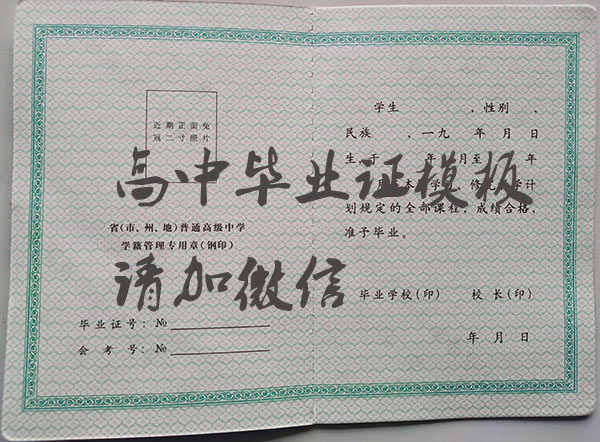 近期正面免
冠二寸照片
省(市、州、地)普通高级中学
学籍管理专用章(钢印)
毕业证号: №
会考号: №
学生 ,性别 ,
民族 ,一九 年 月 日
生,于 年 月至 年
月 本 学 修 学计
划规定的全部课程,成绩合格,
准予毕业。
毕业学校(印) 校长(印)
年 月 日
高中毕业证模板
请加微信